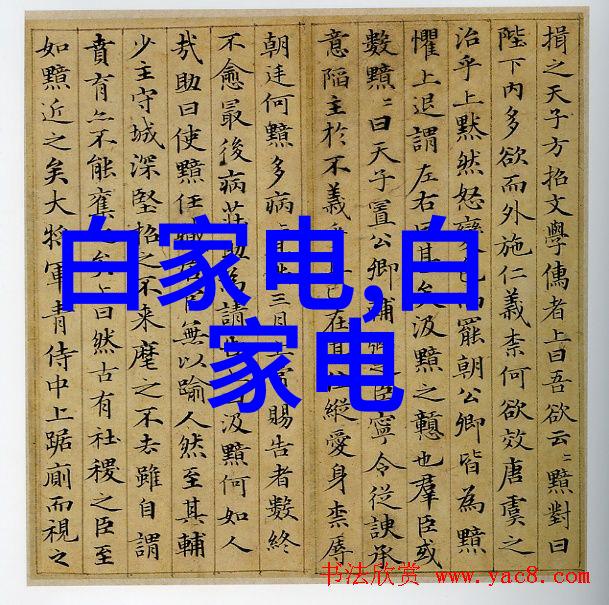 損之天子方招文學儒者上曰吾欲云〻黯對曰
陛下內多欲而外施仁義柰何欲效唐虞之
治乎上黙然怒變罷朝公卿皆為黯
懼上退謂左右曰甚矣汲黯之戇也羣臣或
數黯〻曰天子置公卿輔臣寧令從諛承
意陷主於不義在縱愛身柰辱
朝廷何黯多病三月賜告者數終
不愈最後病莊助為請汲黯何如人
㢤助曰使黯任職無以踰人然至其輔
少主守城深堅招之不来麾之不去雖自謂
賁育亦不能奪之矣上曰然古有社稷之臣至
如黯近之矣大將軍青侍中上踞廁而視之
白家电,白
家电
书法欣赏 www.yac8.com